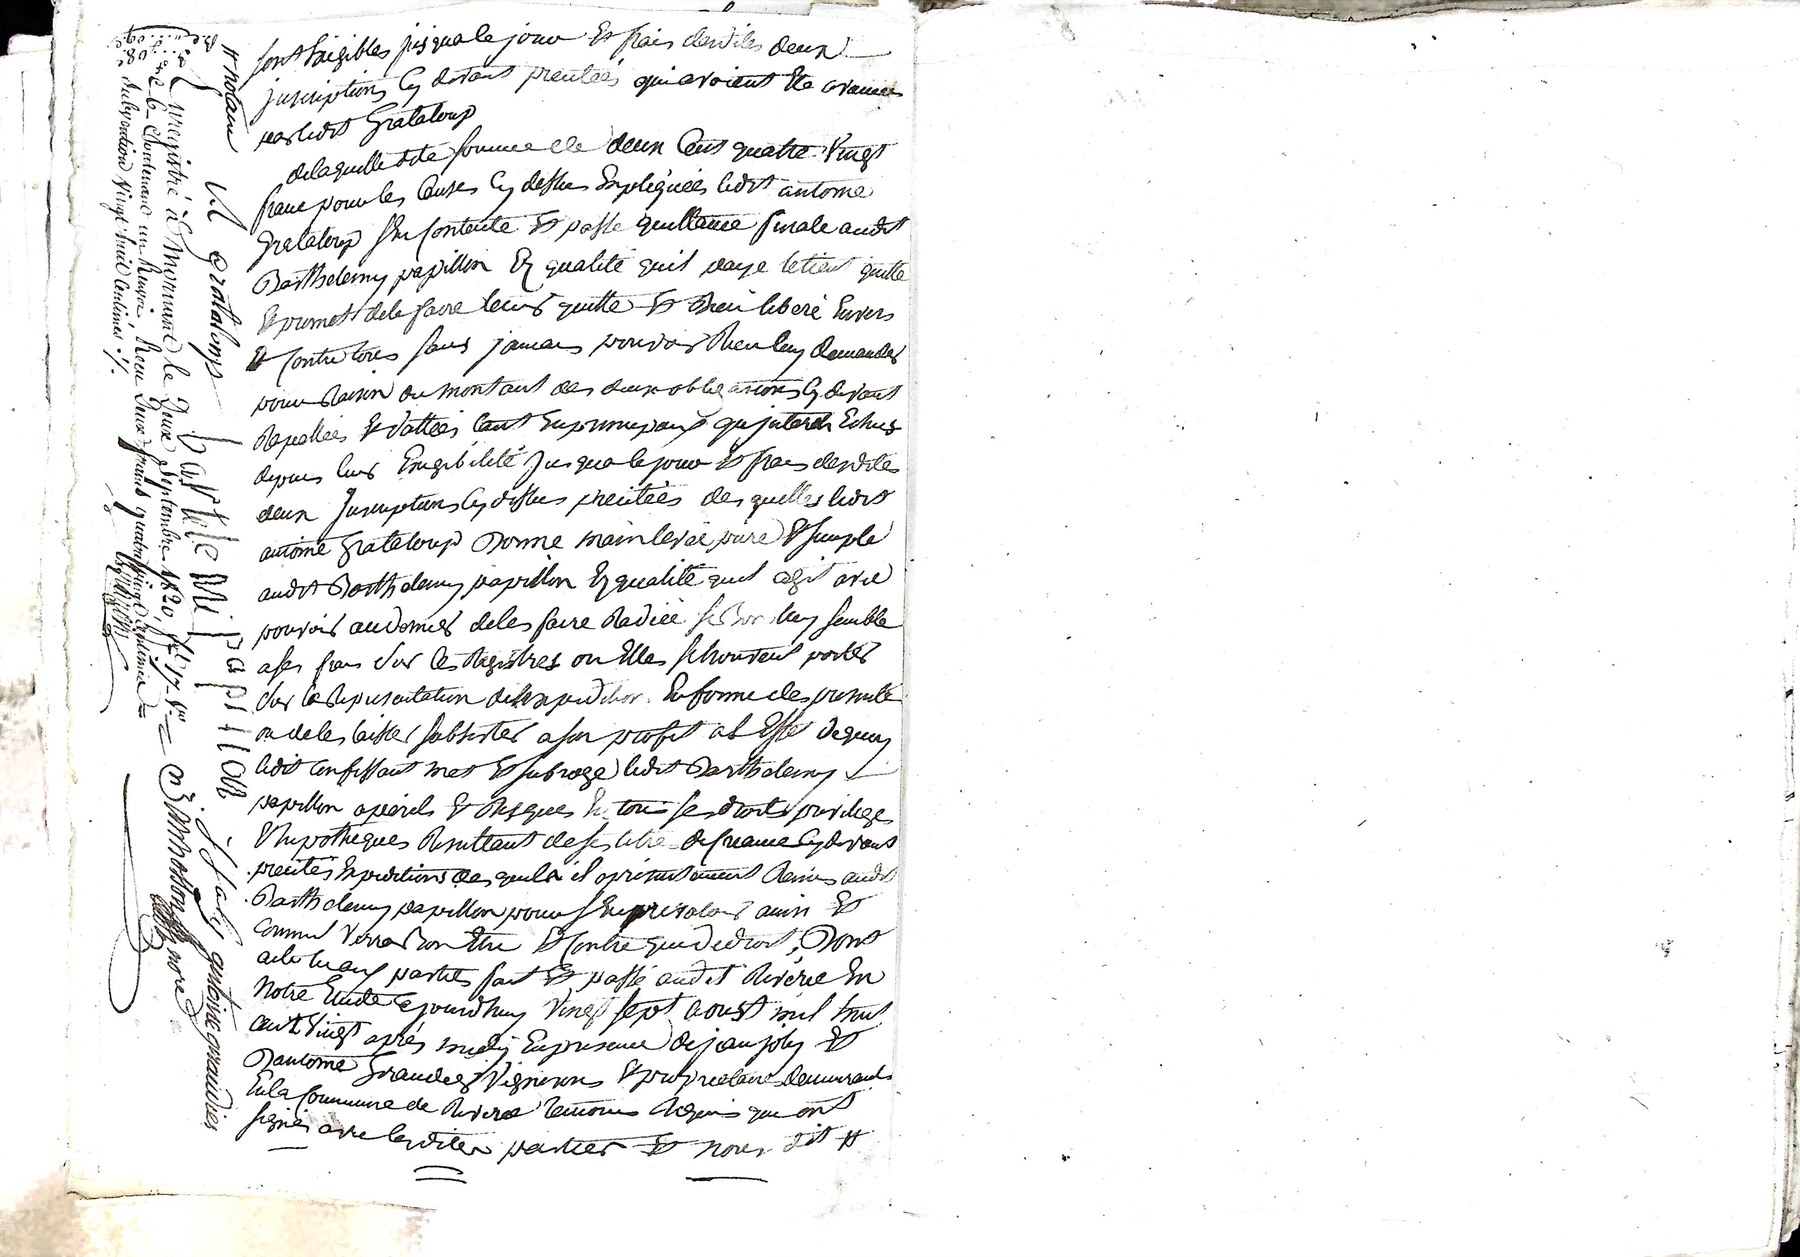 sont Exigibles jusqua le jour Et frais desdites deux
Inscriptions Cy devant precitées qui avoient Ete
par ledit Grataloup
de laquelle dite somme de deux Cent quatre Vingt
franc pour les Causes Cy dessus Expliquées ledit antoine
Grataloup sen Contente Et passe quittance finale audit
Barthelemy papillon En qualité quil paye le tient quitte
Et promet de le faire tenir quitte Et Bien liberé Envers
Et Contre tous sans jamais pouvoir Rien luy demander
pour Raison du montant des deux obligations Cy devant
Rapellées Et dattées tant En principaux qu interets Echus
depuis leur Exigibilité Jusqua le jour Et frais desdites
deux Inscriptions Cy dessus precitées des quelles ledit
antoine Grataloup Donne mainlevée pure Et simple
audit Barthelemy papillon En qualité quil agit avec
pouvoir au dernier de les faire Radier si Bon luy semble
a ses frais sur les Registres ou Elles se trouvent portés
sur la Representation En forme des presentes
ou de les laisser subsister a son profit a l Effet de quoy
ledit Confessant met Et subroge ledit Barthelemy
papillon aperils Et Risques En tous ses droits privileges
Et hypotheques Resultant de ses titre de Creance Cy devant
precités Expeditions des quels il a presentement Remis audit
Barthelemy papillon pour sen prevaloir ainsi Et
Comme Verra Bon Etre Et Contre qui de droit, Dont
acte aux parties fait Et passé audit Riverie En
Notre Etude Ce jourdhuy Vingt sept aoust mil huit
cent Vingt après midy En presence de jean joly Et
Dantoine Giraudier Vignerons Et proprietaires demeurant
En la Commune de Riverie temoins Requis qui ont
signés avec lesdites parties Et nous dit #
# notaire
A grataloup
Bartelemi papillon
j joly antoine giraudier
Enregistré à Mornant le Deux Septembre 1820, f° 17
Contenant un Renvoi Recu Deux francs quatre vingt centimes
Subvention vingt huit Centimes ./.